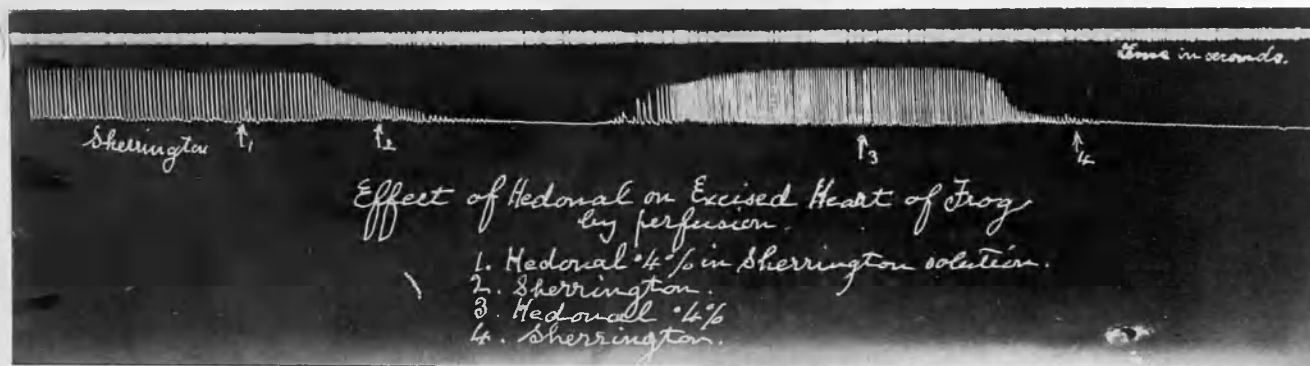 Time in seconds.
Sherrington
1
2
3
4
Effect of Hedonal on Excised Heart of Frog
by perfusion.
1. Hedonal ·4% in Sherrington solution.
2. Sherrington.
3. Hedonal ·4%
4. Sherrington.